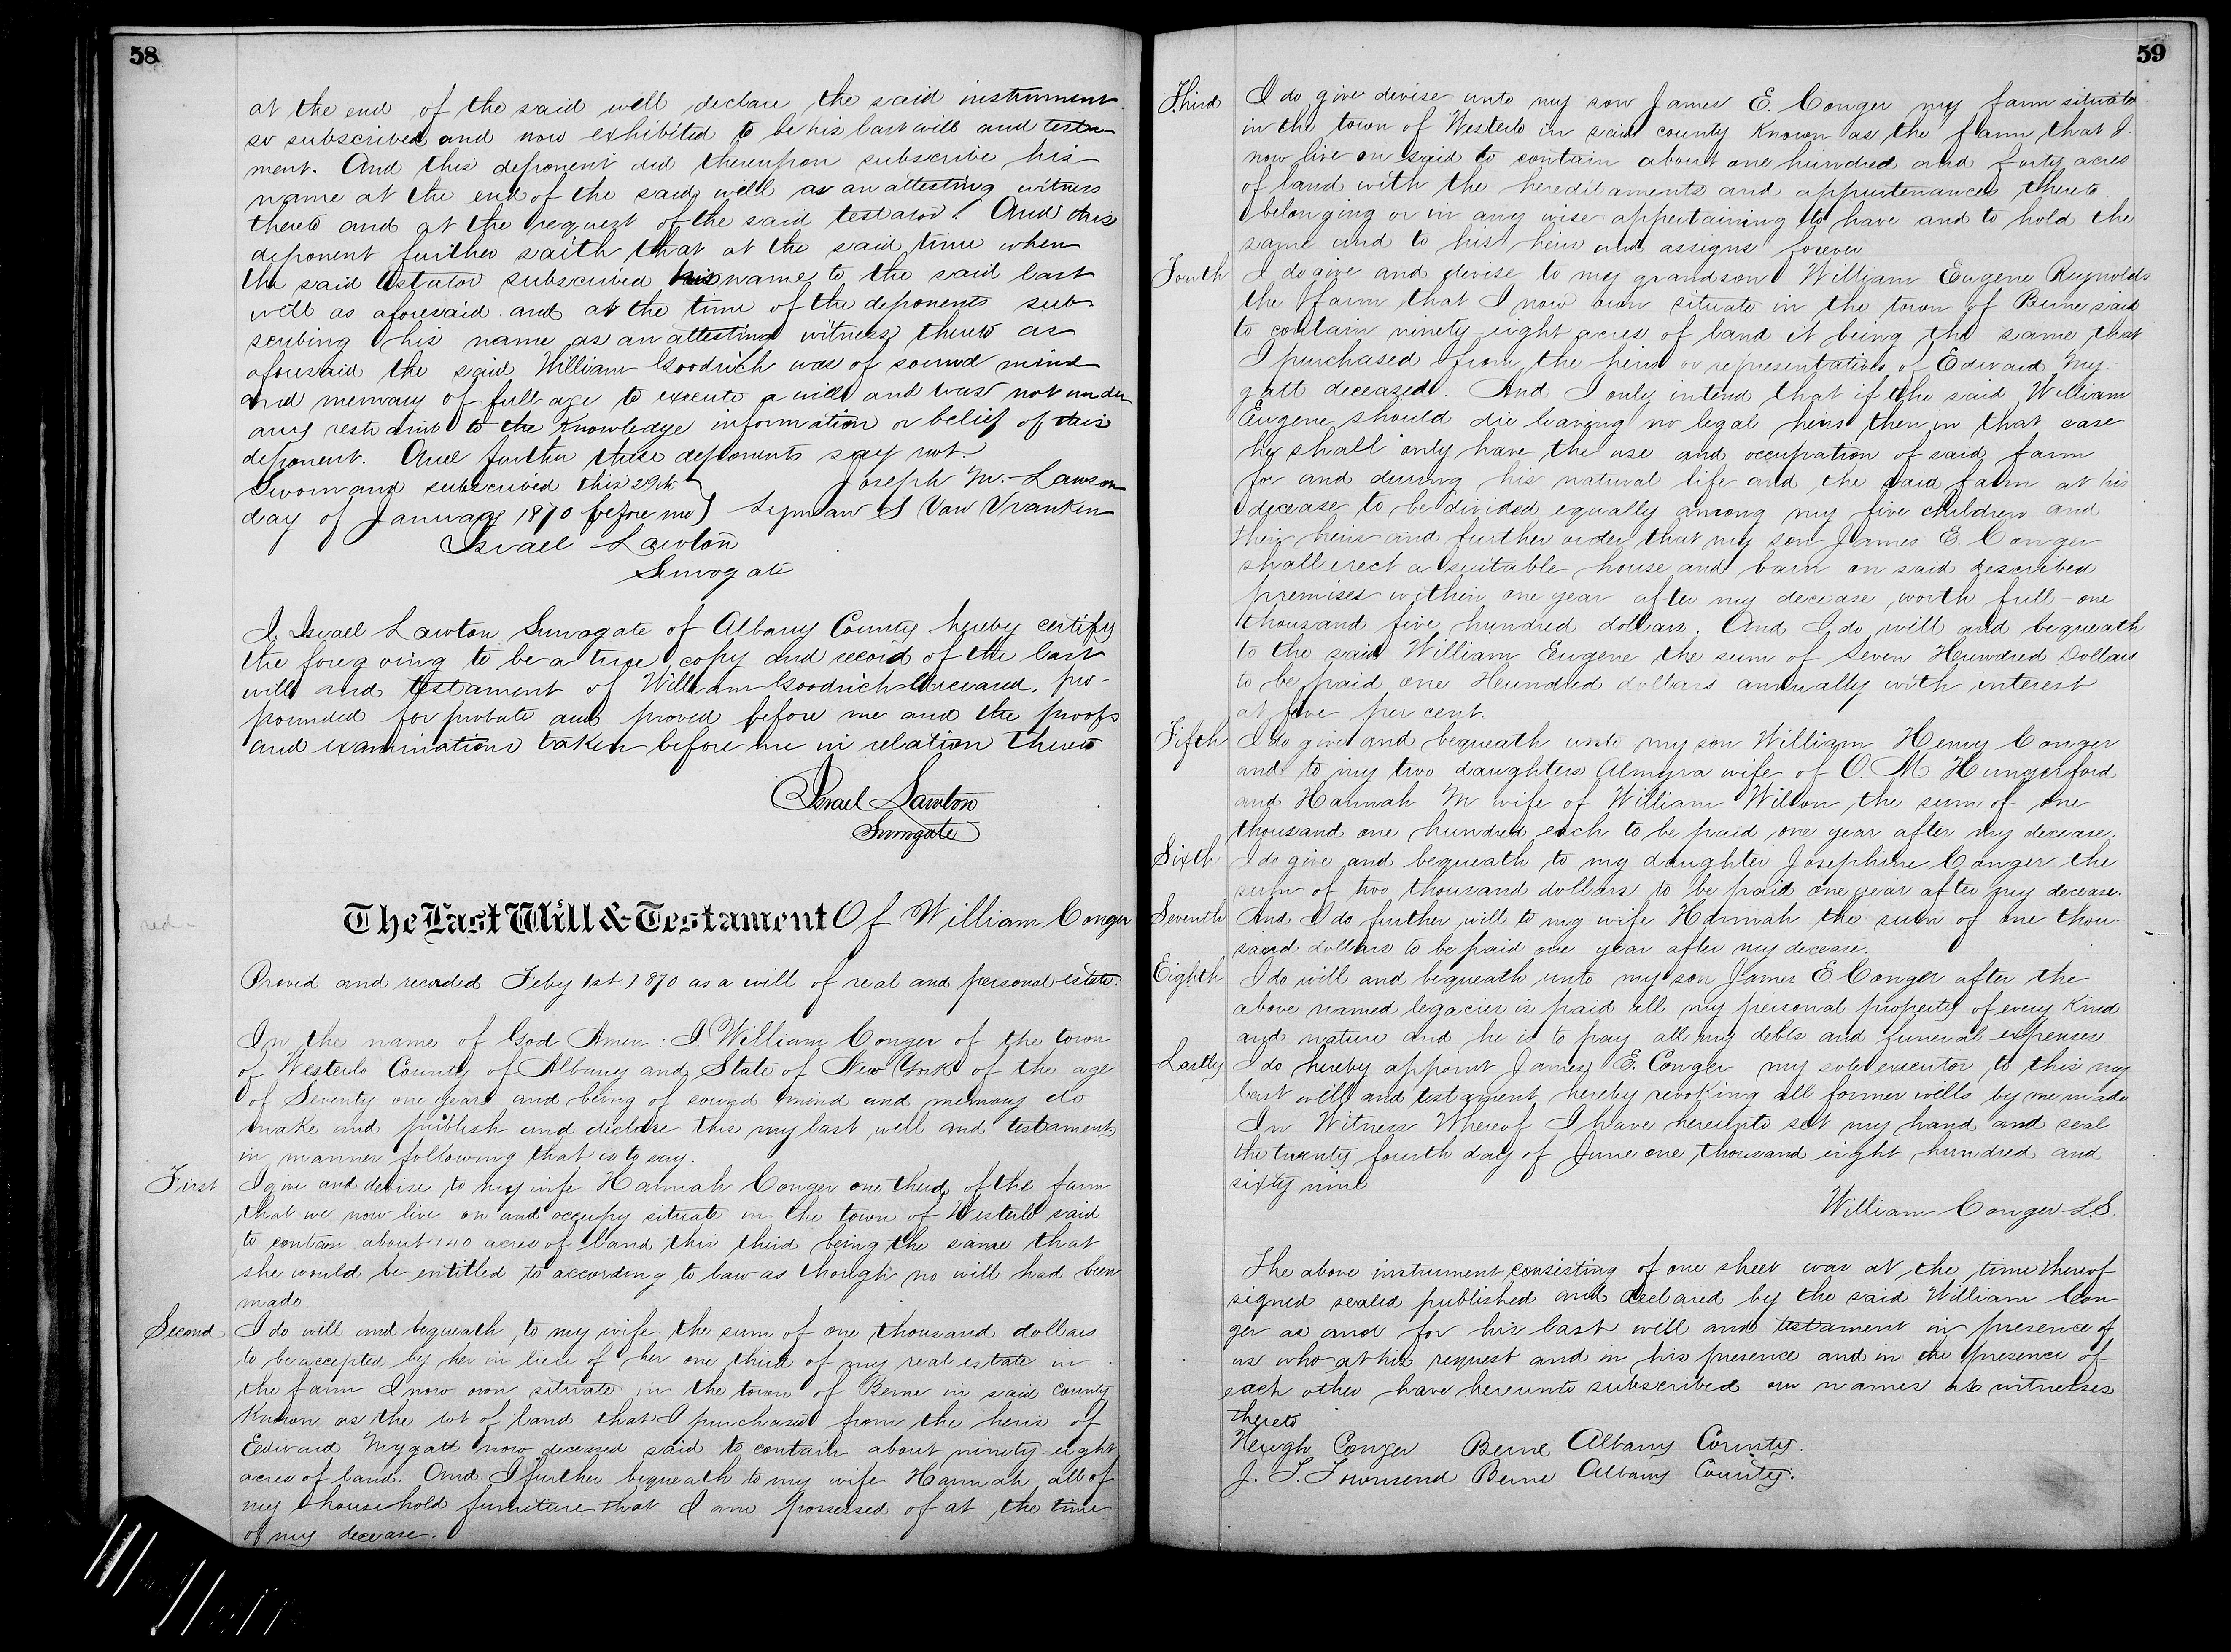 58
at the end of the said will declare the said instrument
so subscribed and now exhibited to be his last will and testa-
ment. And this deponent did thereupon subscribe his
name at the end of the said will as an attesting witness
thereto and at the request of the said testator. And this
deponent further saith that at the said time when
the said testator subscribed his name to the said last
will as aforesaid and at the time of the deponents sub-
scribing his name as an attesting witness thereto as
aforesaid the said William Goodrich was of sound mind
and memory of full age to execute a will and was not under
any restraint to the knowledge information or belief of this
deponent. And further these deponents say not.
Sworn and subscribed this 29th } Joseph M. Lawson
day of January 1870 before me } Lyman S Van Vranken
Israel Lawton
Surrogate
I, Israel Lawton Surrogate of Albany County hereby certify
the foregoing to be a true copy and record of the last
will and testament of William Goodrich deceased, pro-
pounded for probate and proved before me and the proofs
and examinations taken before me in relation thereto
Israel Lawton
Surrogate
red-
The Last Will & Testament Of William Conger
Proved and recorded Feby 1st. 1870 as a will of real and personal estate.
In the name of God Amen: I, William Conger of the town
of Westerlo County of Albany and State of New York of the age
of Seventy one years and being of sound mind and memory do
make and publish and declare this my last will and testament
in manner following that is to say.
First I give and devise to my wife Hannah Conger one third of the farm
that we now live on and occupy situate in the town of Westerlo said
to contain about 140 acres of land this third being the same that
she would be entitled to according to law as though no will had been
made.
Second I do will and bequeath to my wife the sum of one thousand dollars
to be accepted by her in lieu of her one third of my real estate in
the farm I now own situate in the town of Berne in said county
known as the lot of land that I purchased from the heirs of
Edward Mygatt now deceased said to contain about ninety-eight
acres of land. And I further bequeath to my wife Hannah all of
my household furniture that I am possessed of at the time
of my decease.
59
Third I do give devise unto my son James E. Conger my farm situate
in the town of Westerlo in said county known as the farm that I
now live on said to contain about one hundred and forty acres
of land with the hereditaments and appurtenances thereto
belonging or in any wise appertaining to have and to hold the
same and to his heirs and assigns forever
Fourth I do give and devise to my grandson William Eugene Reynolds
the farm that I now own situate in the town of Berne said
to contain ninety-eight acres of land it being the same that
I purchased from the heirs or representatives of Edward My-
gatt deceased. And I only intend that if the said William
Eugene should die leaving no legal heirs then in that case
he shall only have the use and occupation of said farm
for and during his natural life and the said farm at his
decease to be divided equally among my five children and
their heirs and further order that my son James E. Conger
shall erect a suitable house and barn on said described
premises within one year after my decease, worth full one
thousand five hundred dollars. And I do will and bequeath
to the said William Eugene the sum of Seven Hundred Dollars
to be paid one Hundred dollars annually with interest
at five per cent.
Fifth I do give and bequeath unto my son William Henry Conger
and to my two daughters Almyra wife of O. M Hungerford
and Hannah M wife of William Wilson, the sum of one
thousand one hundred each to be paid one year after my decease.
Sixth I do give and bequeath to my daughter Josephine Conger the
sum of two thousand dollars to be paid one year after my decease.
Seventh And I do further will to my wife Hannah the sum of one thou-
sand dollars to be paid one year after my decease.
Eighth I do will and bequeath unto my son James E. Conger after the
above named legacies is paid all my personal property of every kind
and nature and he is to pay all my debts and funeral expenses
Lastly I do hereby appoint James E. Conger my sole executor to this my
last will and testament hereby revoking all former wills by me made
In Witness Whereof I have hereunto set my hand and seal
the twenty fourth day of June one thousand eight hundred and
sixty nine
William Conger L.S.
The above instrument consisting of one sheet was at the time thereof
signed sealed published and declared by the said William Con
ger as and for his last will and testament in presence of
us who at his request and in his presence and in the presence of
each other have hereunto subscribed our names as witnesses
thereto
Heugh Conger Berne Albany County.
J. T. Townsend Berne Albany County.